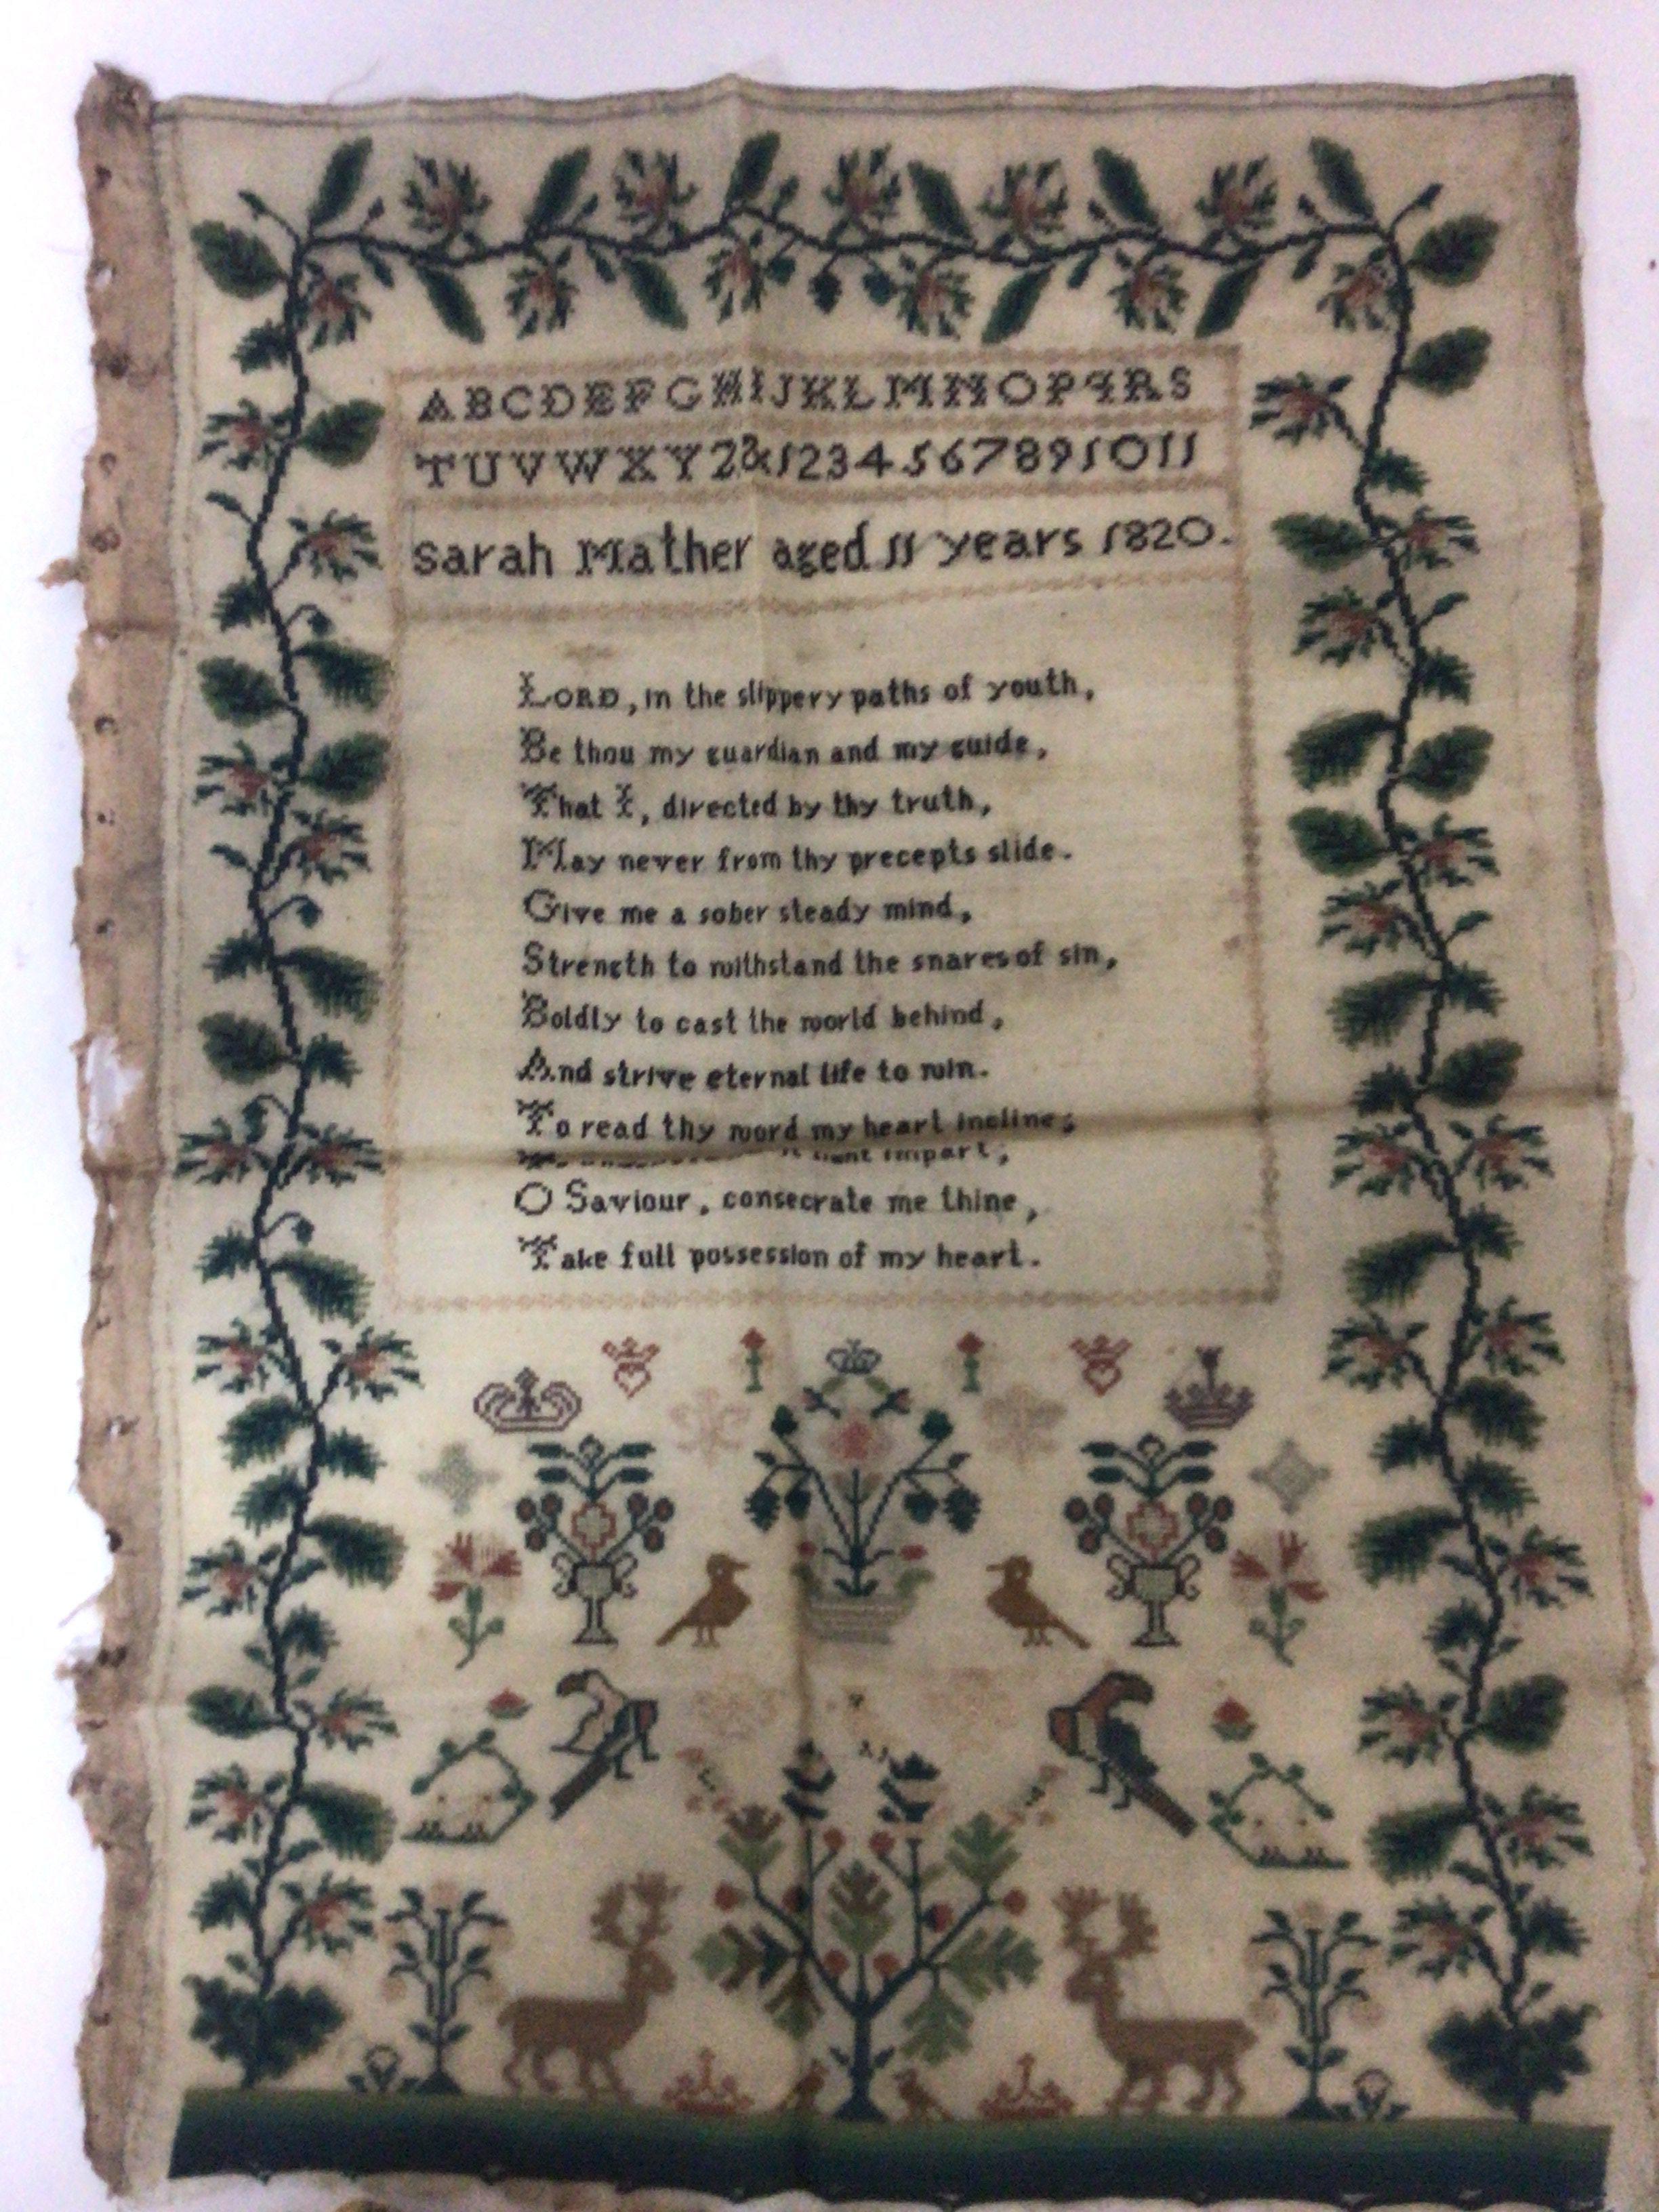 ABCDEFGHIJKLMNOPQRS
TUVWXYZ&1234567891011
Sarah Mather aged 11 years 1820.
LORD, in the slippery paths of youth,
Be thou my guardian and my guide,
That I, directed by thy truth,
May never from thy precepts slide.
Give me a sober steady mind,
Strength to withstand the snares of sin,
Boldly to cast the world behind,
And strive eternal life to win.
To read thy word my heart incline;
light impart;
O Saviour, consecrate me thine,
Take full possession of my heart.